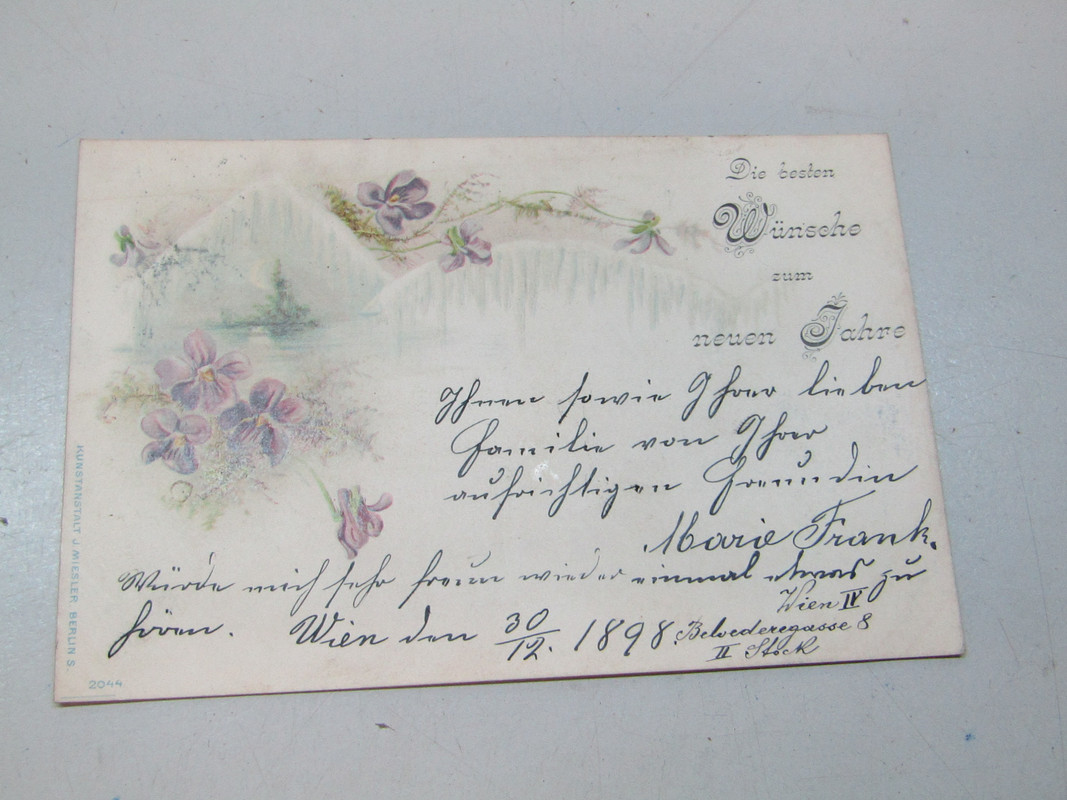 Die besten
Wünsche
zum
neuen Jahre
Ihnen sowie Ihrer lieben
Familie von Ihrer
aufrichtigen Freundin
Marie Frank.
Würde mich sehr freuen wieder einmal etwas zu
hören. Wien den 30/12. 1898
Wien IV
Belvederegasse 8
II Stock
KUNSTANSTALT J. MIESLER BERLIN S.
2044